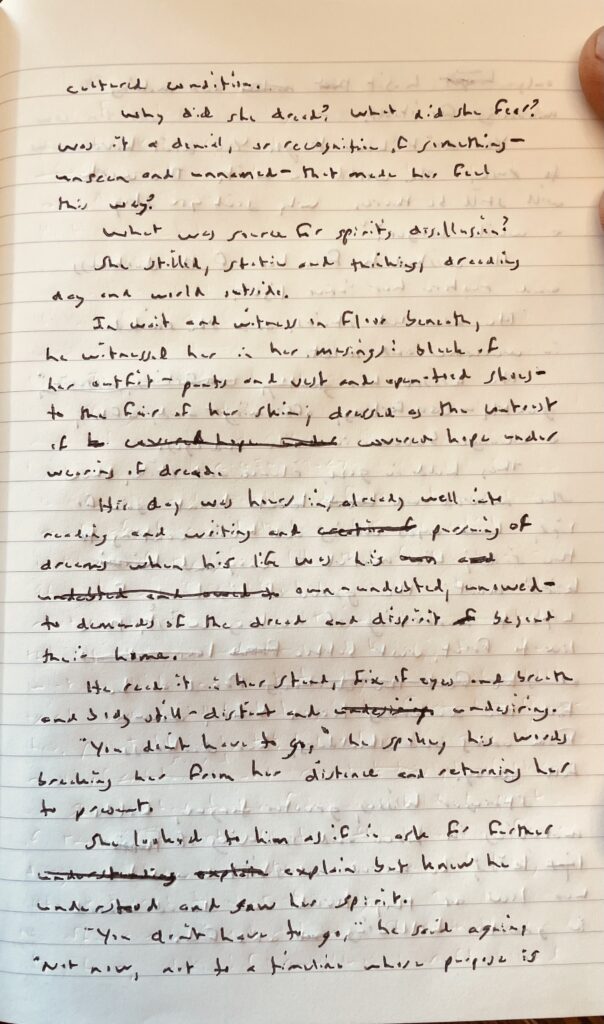 cultured condition.
Why did she dread? What did she fear?
Was it a denial, or recognition of something—
unseen and unnamed—that made her feel
this way?
What was source for spirit's disillusion?
She stilled, static and thinking, dreading
day and world outside.
In wait and witness in floor beneath,
he witnessed her in her musings: black of
her outfit—pants and vest and open-toed shoes—
to the fair of her skin; dressed as the contrast
of covered hope under covered hope under
wearing of dread.
His day was hours in, already well into
reading and writing and pursuing of
dreams when his life was his own and
undebted and owed to own—undebted, unowed—
to demands of the dread and dispirit of beyond
their home.
He read it in her stand, fix of eyes and breath
and body still—distant and undesiring undesiring.
"You don't have to go," he spoke, his words
breaking her from her distance and returning her
to present.
She looked to him as if to ask for further
understanding explain explain but knew he
understood and saw her spirit.
"You don't have to go," he said again,
"Not now, not to a timeline whose purpose is